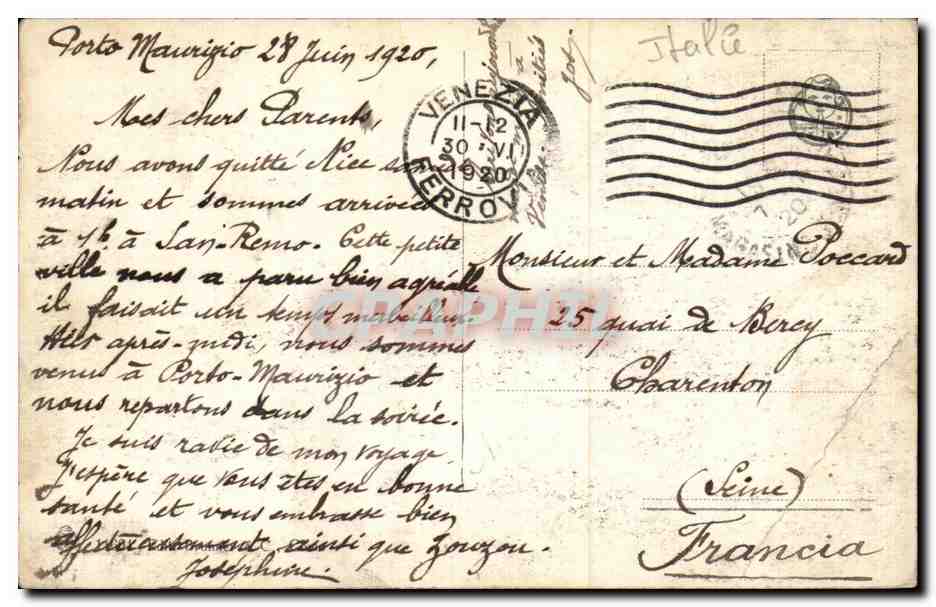 Porto Maurizio 28 Juin 1920,
Mes chers Parents,
Nous avons quitté Nice
matin et sommes arrivées
à 1h à San-Remo. Cette petite
ville nous a paru bien agréable
il faisait un temps merveilleux
Hier après-midi, nous sommes
venus à Porto-Maurizio et
nous repartons dans la soirée.
Je suis ravie de mon voyage
J'espère que vous êtes en bonne
santé et vous embrasse bien
affectueusement ainsi que Zouzou.
Joséphine.
Italie
VENEZIA
11-12
30·VI
1920
FERROVIA
Monsieur et Madame Poccard
25 quai de Bercy
Charenton
(Seine)
Francia
CPAPHIL